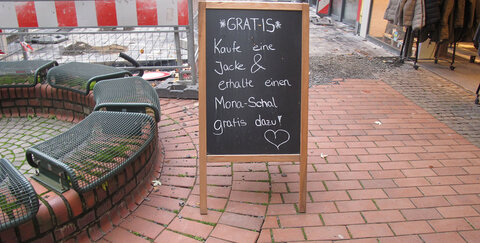 *GRATIS*
Kaufe eine
Jacke &
erhalte einen
Mona-Schal
gratis dazu!